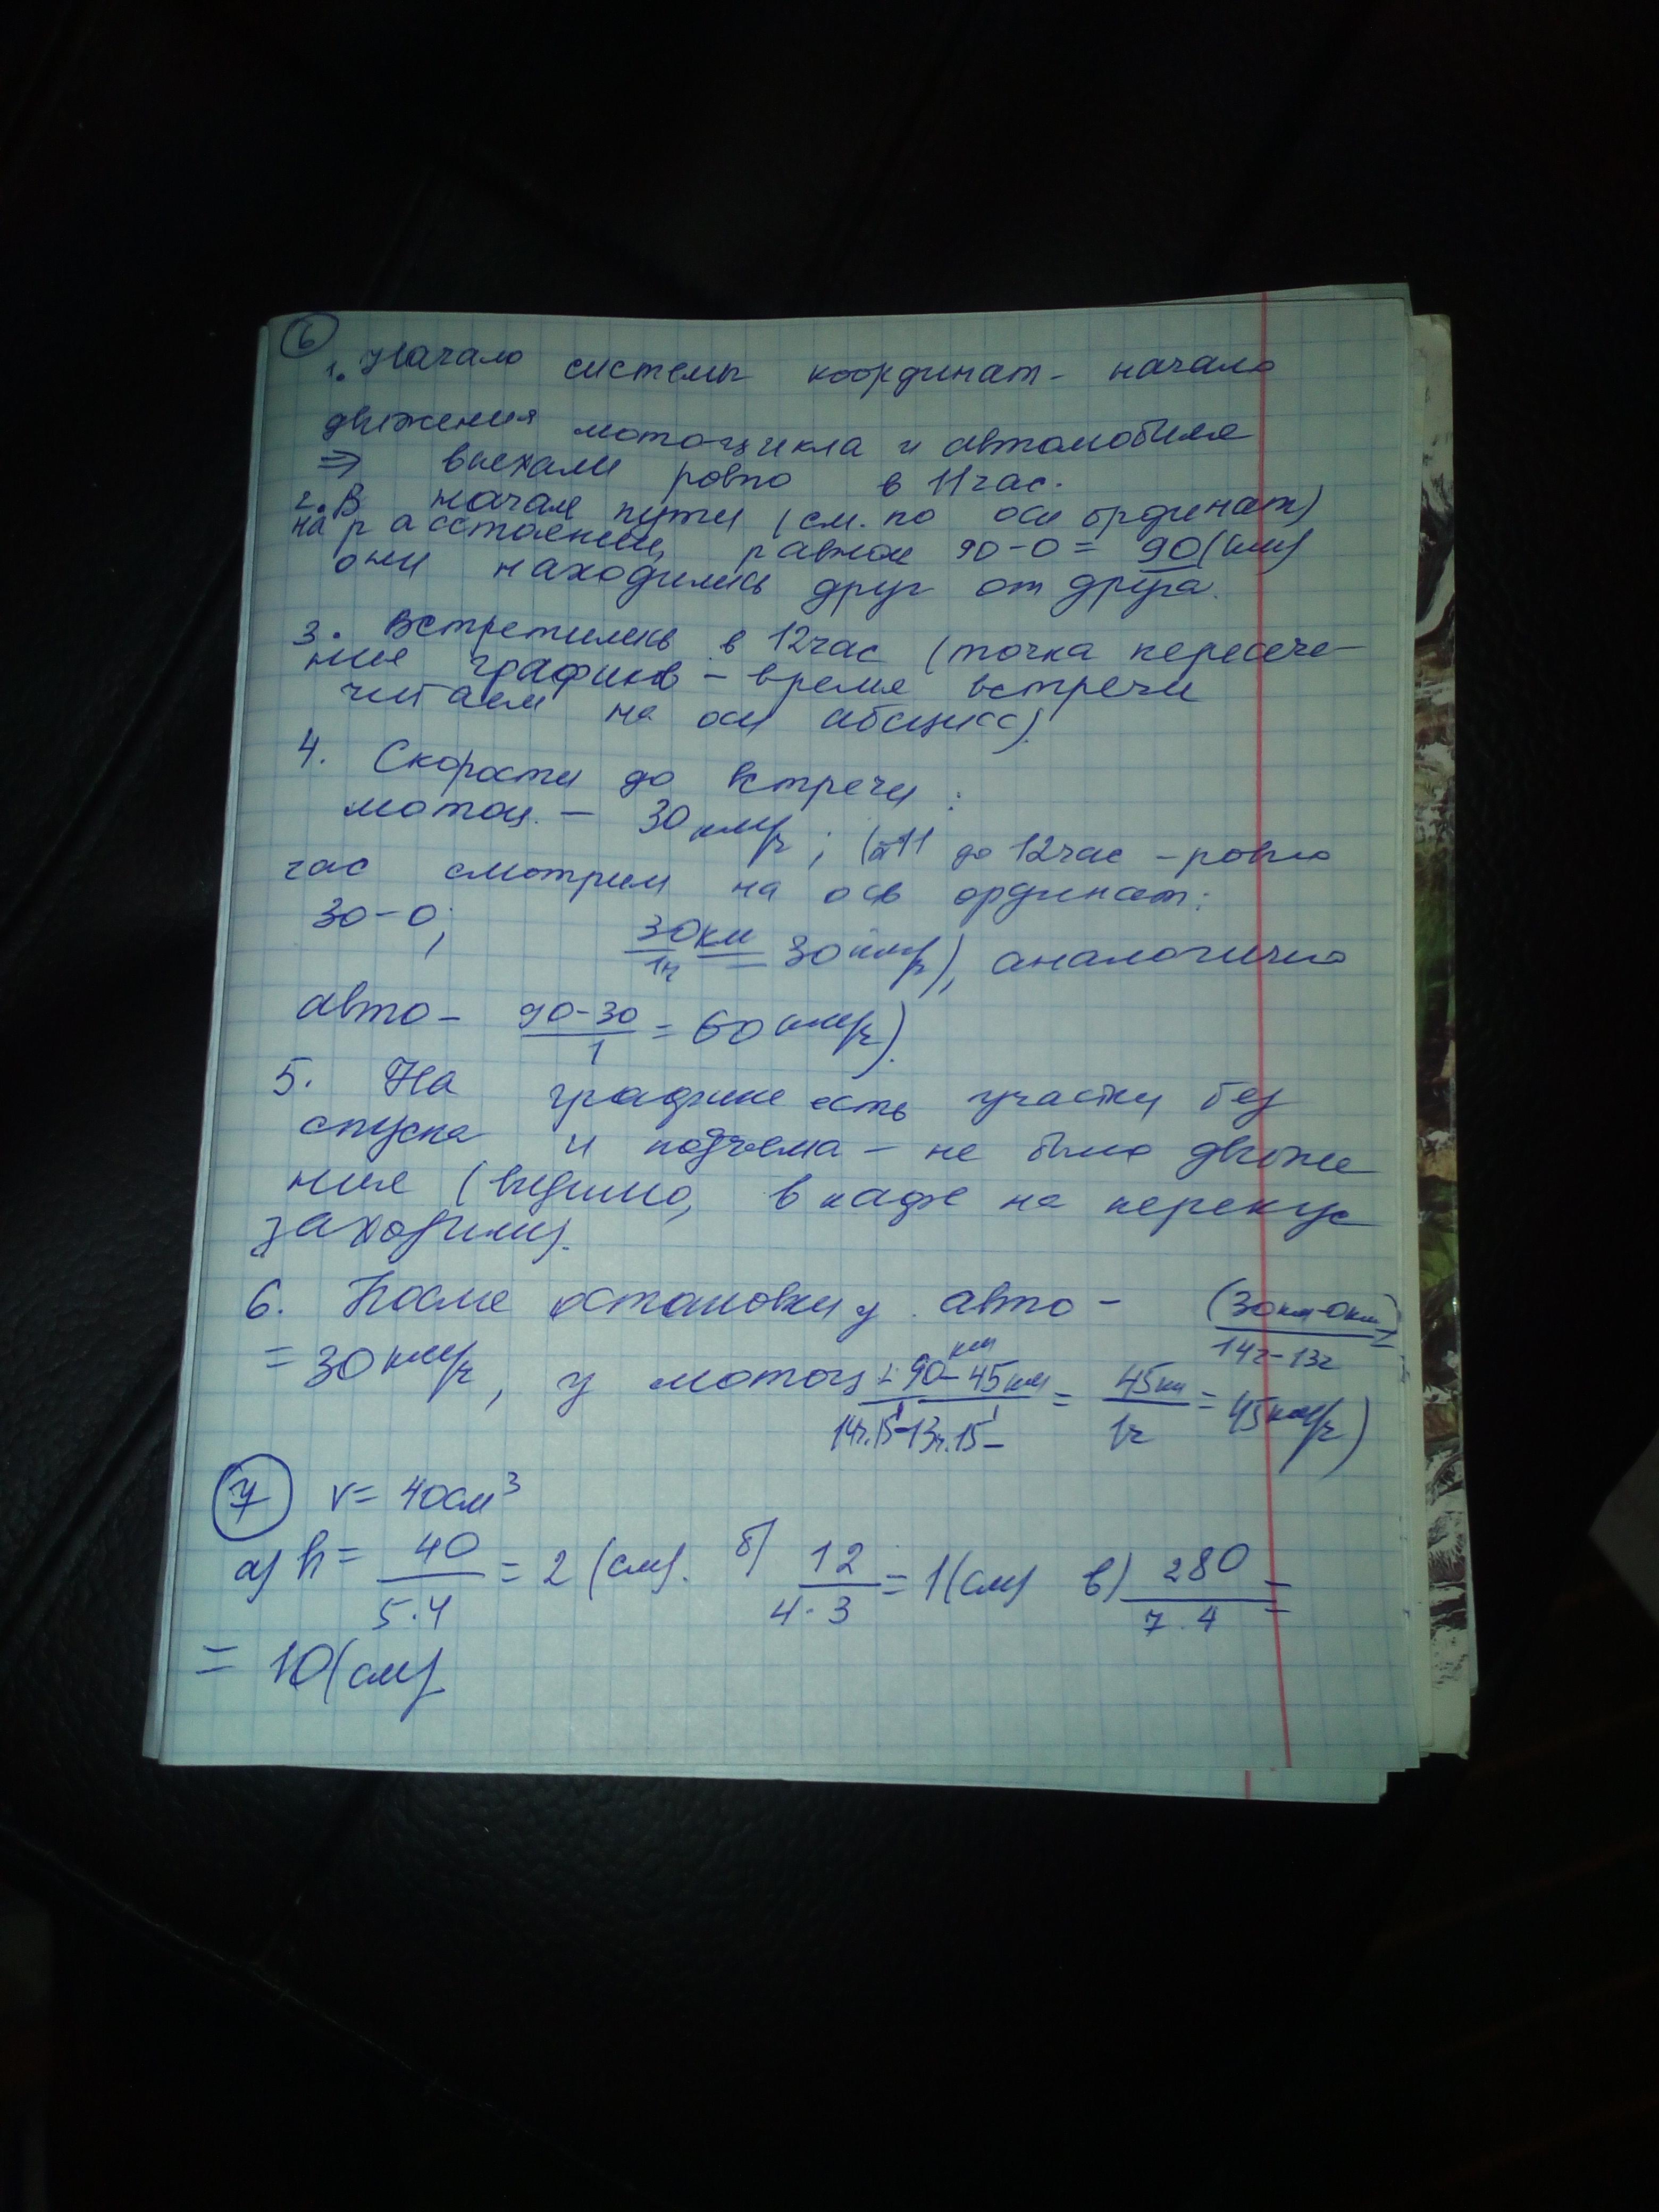 6
1. Начало системы координат - начало
движения мотоцикла и автомобиля
⇒ выехали ровно в 11 час.
2. В начале пути (см. по оси ординат)
на расстоянии, равном 90-0 = 90(км)
они находились друг от друга.
3. Встретились в 12 час (точка пересече-
ния графиков - время встречи
читаем на оси абсцисс).
4. Скорости до встречи:
мотоц. - 30 км/ч; (от 11 до 12 час - ровно
час смотрим на ось ординат:
30-0; 30км/1ч = 30 км/ч), аналогично
авто - 90-30/1 = 60 км/ч).
5. На графике есть участки без
спуска и подъема - не было движе
ния (видимо, в кафе на перекус
заходили).
6. После остановки у авто - (30км-0км)/14ч-13ч =
= 30 км/ч, у мотоц - 90км-45км/14ч.15'-13ч.15' = 45км/1ч = 45 км/ч)
7 V = 40 см³
а) h = 40/5·4 = 2 (см). б) 12/4·3 = 1 (см) в) 280/7·4 =
= 10 (см)